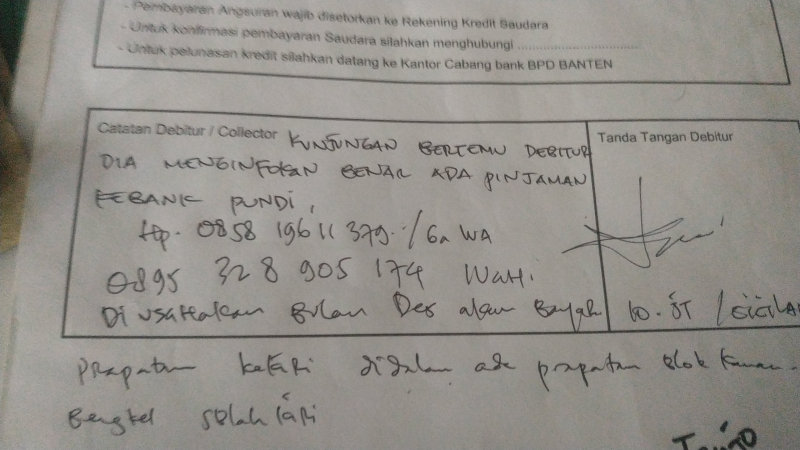 - Pembayaran Angsuran wajib disetorkan ke Rekening Kredit Saudara
- Untuk konfirmasi pembayaran Saudara silahkan menghubungi ....................................
- Untuk pelunasan kredit silahkan datang ke Kantor Cabang bank BPD BANTEN
Catatan Debitur / Collector KUNJUNGAN BERTEMU DEBITUR
Tanda Tangan Debitur
DIA MENGINFOKAN BENAR ADA PINJAMAN
KEBANK PUNDI,
Hp. 0858 19611 379
WA
0895 328 905 174
Diusahakan Bulan Des akan Bayar 10. JT / CICILAN
Prapatan didalam ada prapatan blok kanan.
Bengkel sblah kiri